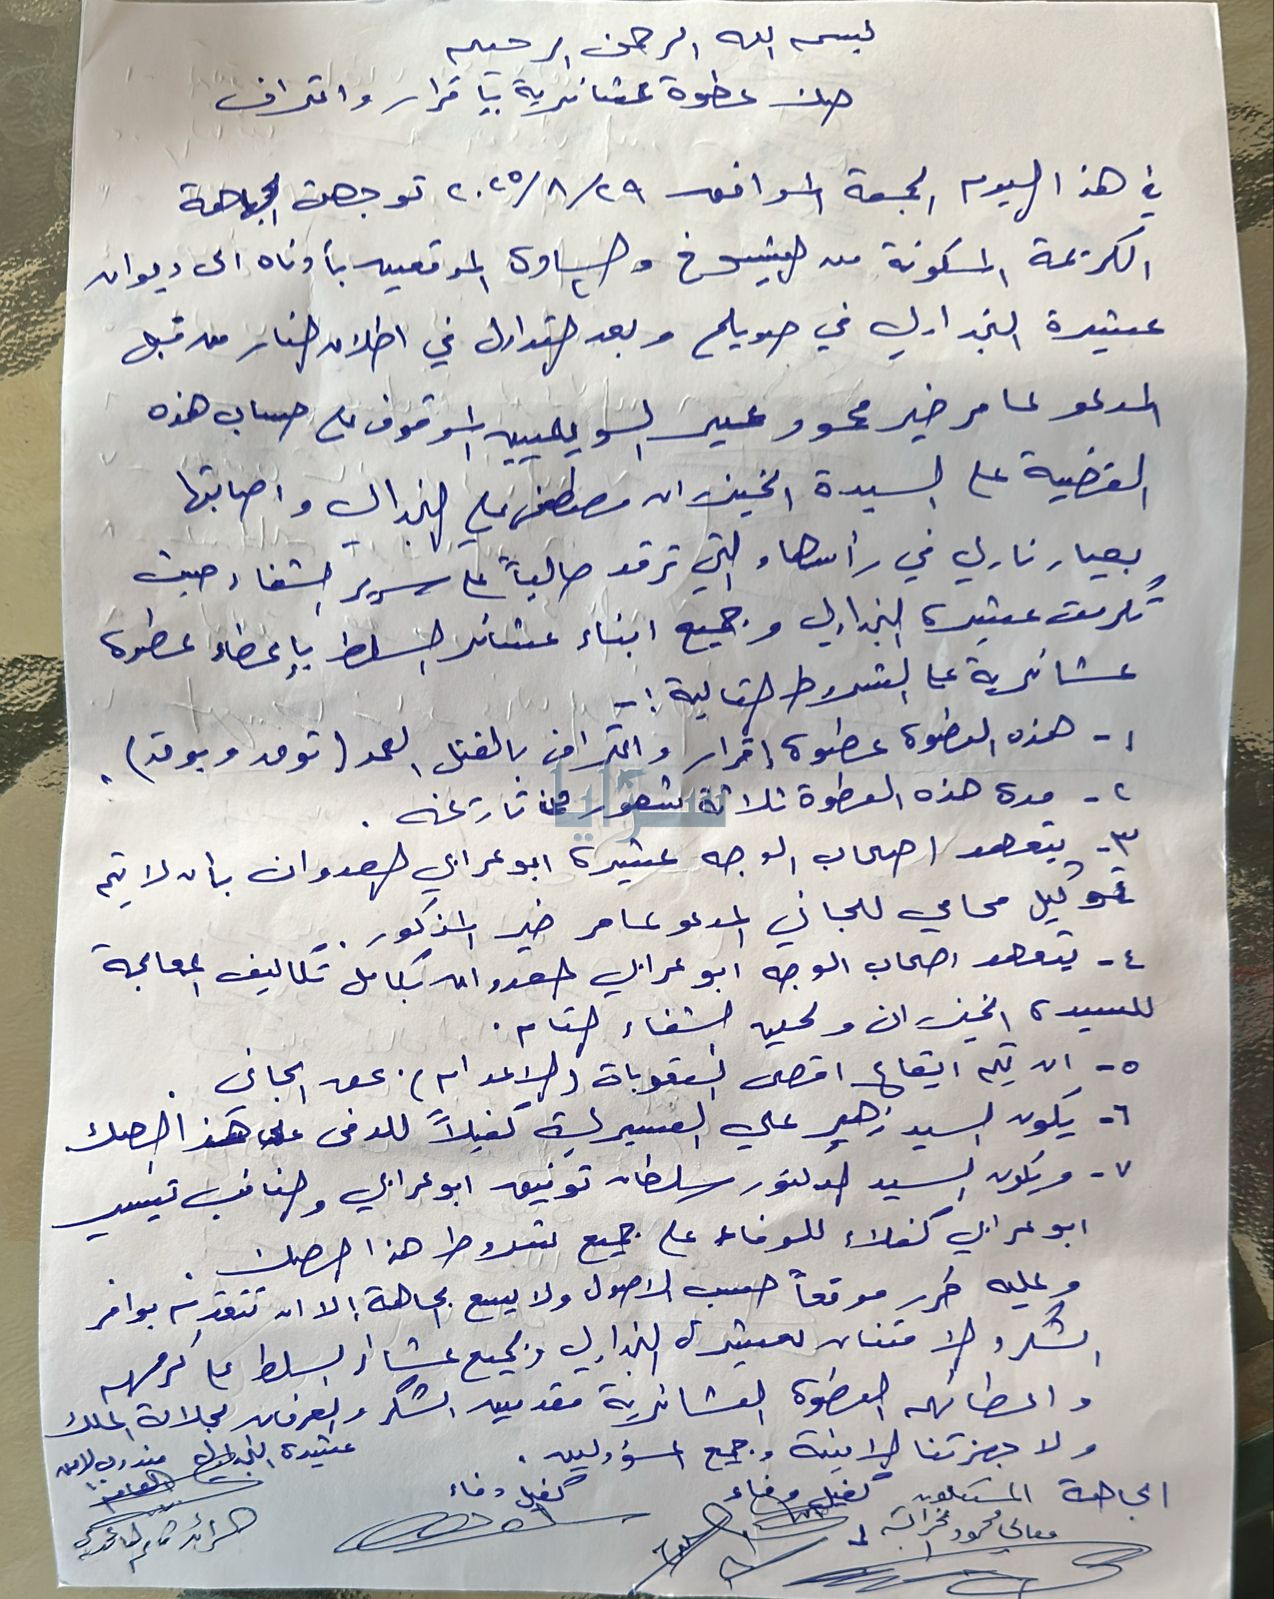 بسم الله الرحمن الرحيم
صك عطوة عشائرية بإقرار واعتراف
في هذا اليوم الجمعة الموافق ٢٠٢٥/٨/٢٩ توجهت الجاهة
الكريمة المكونة من الشيوخ والسادة الموقعين بأدناه الى ديوان
عشيرة النجداوي في صويلح وبعد التداول في اطلاق النار من قبل
المدعو عامر خير محمود عمير السويلميين الموقوف على حساب هذه
القضية على السيدة الخيزران مصطفى علي النجداوي واصابتها
بعيار ناري في رأسها والتي ترقد حالياً على سرير الشفاء حيث
تكرمت عشيرة النجداوي وجميع ابناء عشائر السلط بإعطاء عطوة
عشائرية على الشروط التالية :-
١- هذه العطوة عطوة إقرار واعتراف بالقتل العمد (
٢- مدة هذه العطوة ثلاثة شهور من تاريخه .
٣- يتعهد اصحاب الوجه عشيرة ابو عرابي العدوان بأن لا يتم
توكيل محامي للجاني المدعو عامر خير المذكور .
٤- يتعهد اصحاب الوجه ابو عرابي العدوان بكامل تكاليف المعالجة
للسيدة الخيزران ولحين الشفاء التام .
٥- ان يتم ايقاع اقصى العقوبات (الاعدام) بحق الجاني .
٦- يكون السيد زهير علي كفيلاً للدفى على هذا الصك
٧- ويكون السيد الدكتور سلطان توفيق ابو عرابي و
ابو عرابي كفلاء للوفاء على جميع شروط هذا الصك .
وعليه حرر موقعاً حسب الاصول ولا يسع الجاهة إلا ان تتقدم بوافر
الشكر والامتنان لعشيرة النجداوي وجميع عشائر السلط على كرمهم
واعطائهم العطوة العشائرية مقدمين الشكر والعرفان لجلالة الملك
ولاجهزتنا الامنية وجميع المسؤولين .
الجاهة المستلمون كفيل وفاء كفيل دفاء عشيرة النجداوي
معالي محمود
سرايا